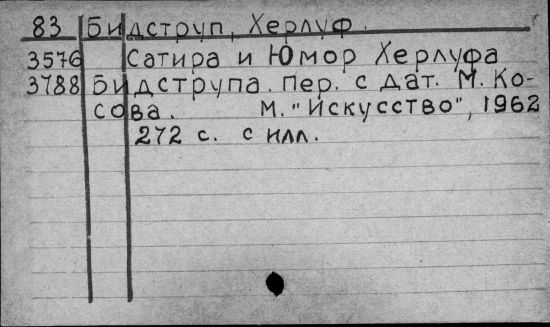 83 Бидструп, Херлуф.
3576 Сатира и Юмор Херлуфа
3788 Бидструпа. Пер. с дат. М. Ко-
сова. М. "Искусство", 1962
272 с. с илл.